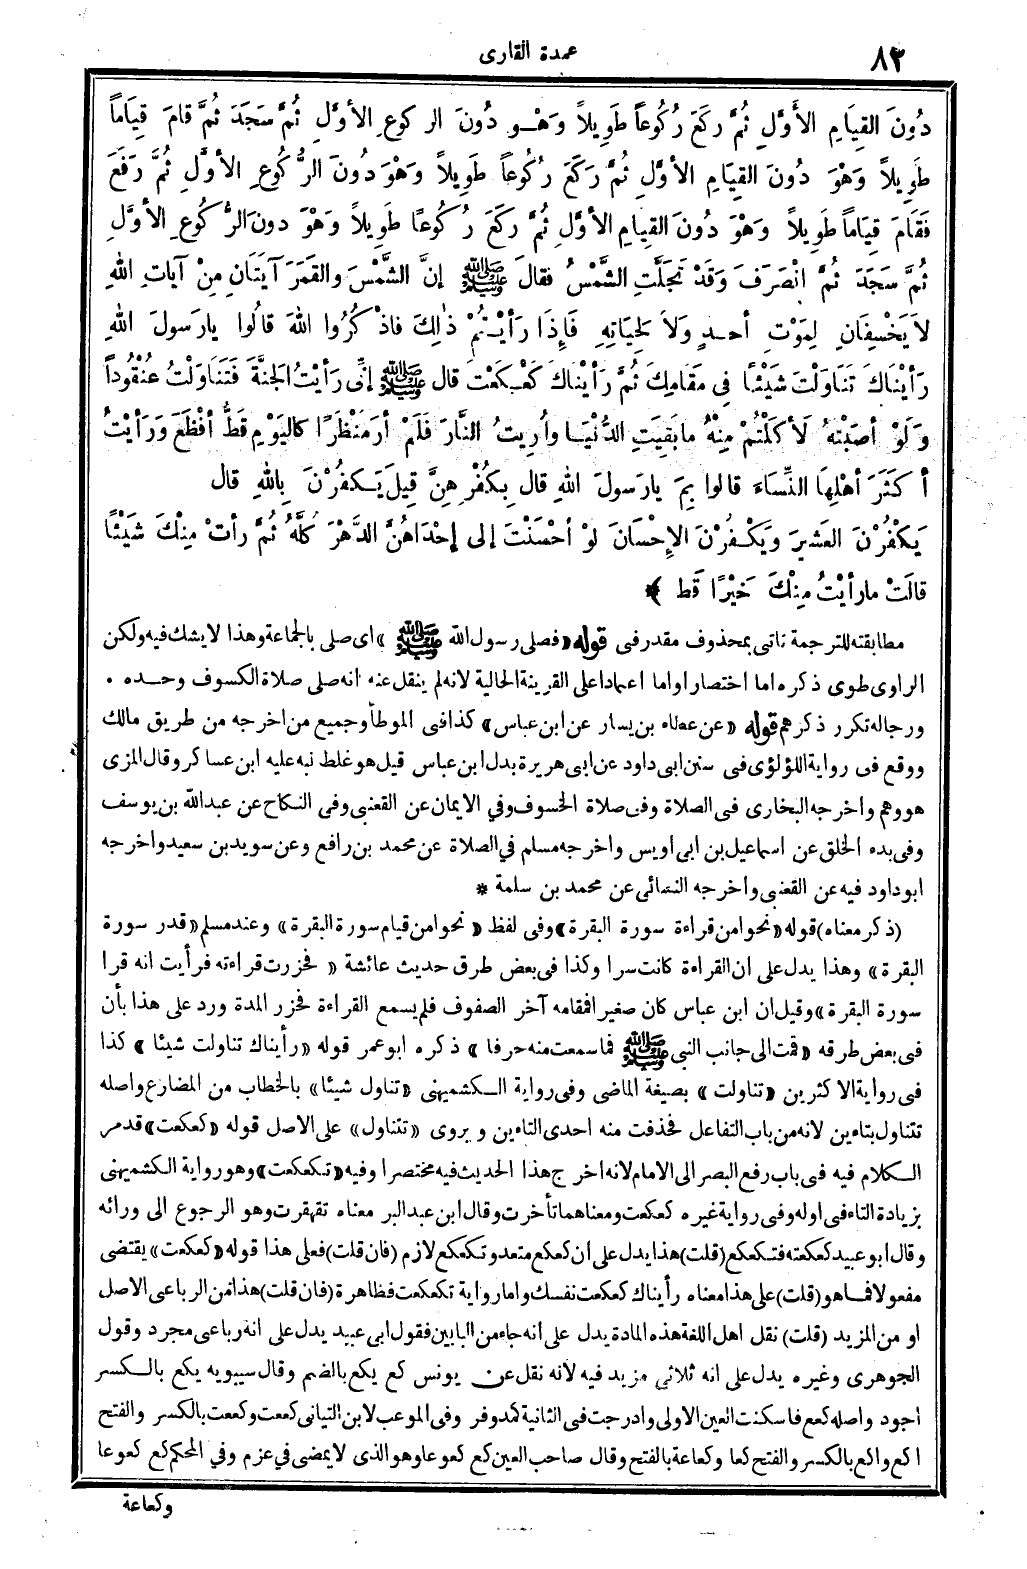 ٨٣
عمدة القارى
دُونَ القِيَامِ الأَوَّلِ ثُمَّ رَكَعَ رُكُوعاً طَوِيلاً وَهْـوَ دُونَ الركوعِ الأوَّلِ ثُمَّ سَجَدَ ثُمَّ قامَ قِيَاماً
طَوِيلاً وَهْوَ دُونَ القِيَامِ الأوَّلِ ثُمَّ رَكَعَ رُكُوعاً طَوِيلاً وَهْوَ دُونَ الرُّكُوعِ الأوَّلِ ثُمَّ رَفَعَ
فَقَامَ قِيَاماً طَوِيلاً وَهْوَ دُونَ القِيامِ الأوَّلِ ثُمَّ رَكَعَ رُكُوعًا طَوِيلاً وَهْوَ دونَ الرُّكُوعِ الأوَّلِ
ثُمَّ سَجَدَ ثُمَّ انْصَرَفَ وَقَدْ تَجَلَّتِ الشَّمْسُ فقالَ ﷺ إنَّ الشَّمْسَ والقَمَرَ آيَتَانِ مِنْ آيَاتِ اللهِ
لاَ يَخْسِفَانِ لِمَوْتِ أحـدٍ وَلاَ لِحَيَاتِهِ فَإذَا رَأيْـتُمْ ذٰلِكَ فاذْكُرُوا اللهَ قالُوا يارَسولَ اللهِ
رَأيْنَاكَ تَنَاوَلْتَ شَيْئًا فِى مَقَامِكَ ثُمَّ رَأيْنَاكَ كَعْـكَعْتَ قال ﷺ إنِّى رَأيْتُ الجَنَّةَ فَتَنَاوَلْتُ عُنْقُوداً
وَلَوْ أصَبْتُهُ لَأكَلْتُمْ مِنْهُ مابَقِيَتِ الدُّنْيَـا وأُرِيتُ النَّارَ فَلَمْ أرَ مَنْظَرًا كاليَوْمِ قَطُّ أفْظَعَ وَرَأيْتُ
أكْثَرَ أهْلِهَا النِّسَاءَ قالوا بِمَ يارَسولَ اللهِ قال بِكُفْرِهِنَّ قِيلَ يَـكفُرْنَ بِاللهِ قال
يَكْفُرْنَ العَشيرَ وَيَكْـفُرْنَ الإحْسَانَ لَوْ أحْسَنْتَ إلى إحْدَاهُنَّ الدَّهْرَ كُلَّهُ ثُمَّ رأتْ مِنْكَ شَيْئًا
قالَتْ مارأيْتُ مِنْكَ خَيْرًا قَط ﴾
مطابقته للترجمة تاتى بمحذوف مقدر فى قوله «فصلى رسول الله ﷺ» اى صلى بالجماعة وهذا لا يشك فيه ولكن
الراوى طوى ذكره اما اختصارا واما اعتمادا على القرينة الحالية لانه لم ينقل عنه انه صلى صلاة الكسوف وحـده .
ورجاله تكرر ذكرهم قوله «عن عطاء بن يسار عن ابن عباس» كذا فى الموطأ وجميع من اخرجه من طريق مالك
ووقع فى رواية اللؤلؤى فى سنن ابى داود عن ابى هريرة بدل ابن عباس قيل هو غلط نبه عليه ابن عساكر وقال المزى
هو وهم واخرجه البخارى فى الصلاة وفى صلاة الخسوف وفي الايمان عن القعنبى وفى النكاح عن عبدالله بن يوسف
وفى بدء الخلق عن اسماعيل بن ابى اويس واخرجه مسلم في الصلاة عن محمد بن رافع وعن سويد بن سعيد واخرجه
ابوداود فيه عن القعنبى واخرجه النسائى عن محمد بن سلمة *
(ذكر معناه) قوله «نحوا من قراءة سورة البقرة» وفى لفظ «نحوا من قيام سورة البقرة» وعند مسلم «قدر سورة
البقرة» وهذا يدل على ان القراءة كانت سرا وكذا فى بعض طرق حديث عائشة «فحزرت قراءته فرأيت انه قرا
سورة البقرة» وقيل ان ابن عباس كان صغيرا فمقامه آخر الصفوف فلم يسمع القراءة فحزر المدة ورد على هذا بأن
فى بعض طرقه «قمت الى جانب النبى ﷺ فما سمعت منه حرفا» ذكره ابو عمر قوله «رأيناك تناولت شيئا» كذا
فى رواية الاكثرين «تناولت» بصيغة الماضى وفى رواية الـكشميهنى «تناول شيئا» بالخطاب من المضارع واصله
تتناول بتاءين لانه من باب التفاعل فحذفت منه احدى التاءين ويروى «تتناول» على الاصل قوله «كعكعت» قدمر
الـكلام فيه فى باب رفع البصر الى الامام لانه اخرج هذا الحديث فيه مختصرا وفيه «تكعكعت» وهو رواية الكشميهنى
بزيادة التاء فى اوله وفى رواية غيره كعكعت ومعناهما تأخرت وقال ابن عبدالبر معناه تقهقرت وهو الرجوع الى ورائه
وقال ابو عبيد كعكعته فتـكعكع (قلت) هذا يدل على ان كعكع متعد وتكعكع لازم (فان قلت) فعلى هذا قوله «كعكعت» يقتضى
مفعولا فمـا هو (قلت) على هذا معناه رأيناك كعكعت نفسك واما رواية تكعكعت فظاهرة (فان قلت) هذا من الرباعى الاصل
او من المزيد (قلت) نقل اهل اللغة هذه المادة يدل على انه جاء من البابين فقول ابى عبيد يدل على انه رباعى مجرد وقول
الجوهرى وغيره يدل على انه ثلاثى مزيد فيه لانه نقل عن يونس كع يكع بالضم وقال سيبويه يكع بالـكسر
اجود واصله كعع فاسكنت العين الاولى وادرجت فى الثانية كمد وفر وفى الموعب لابن التيانى كععت وكععت بالكسر والفتح
اكع واكع بالكسر والفتح كعا وكعاعة بالفتح وقال صاحب العين كع كعوعا وهو الذى لا يمضى في عزم وفي المحكم كع كعوعا
وكعاعة